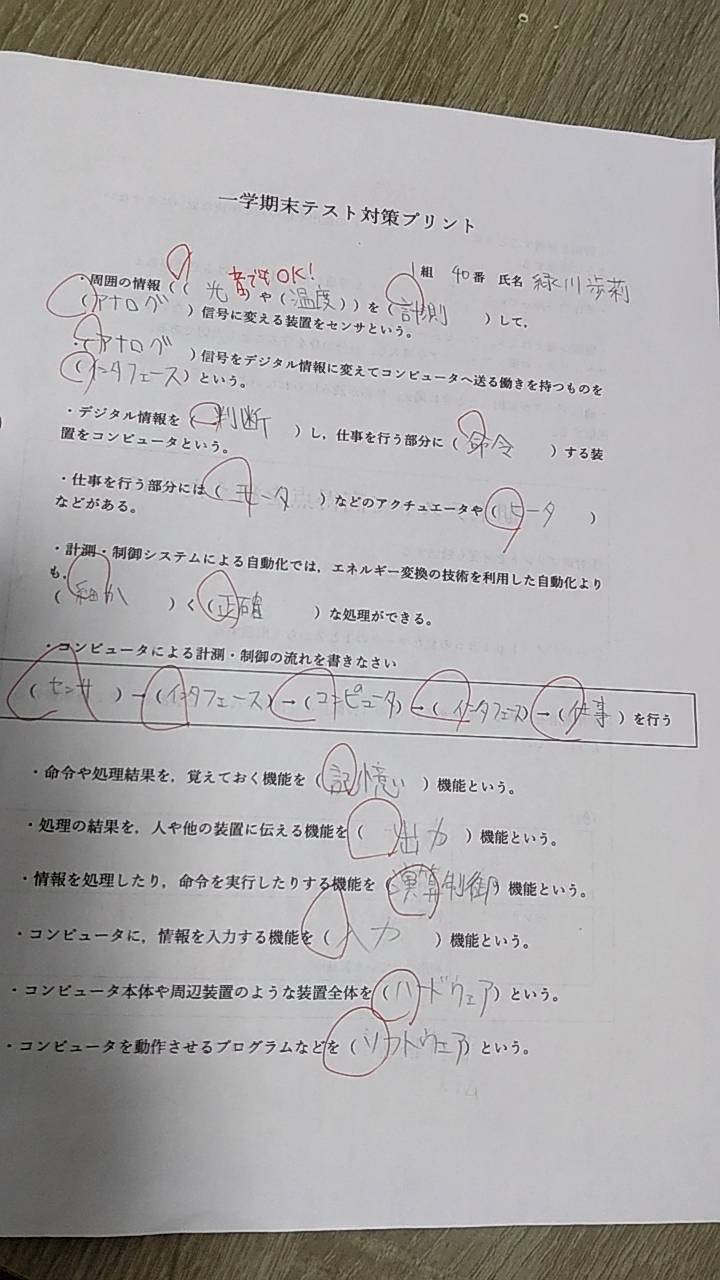 一学期末テスト対策プリント
1組 40番 氏名 緑川歩莉
音でもOK!
・周囲の情報（（光）や（温度））を（計測）して，
（アナログ）信号に変える装置をセンサという。
・（アナログ）信号をデジタル情報に変えてコンピュータへ送る働きを持つものを
（インタフェース）という。
・デジタル情報を（判断）し，仕事を行う部分に（命令）する装
置をコンピュータという。
・仕事を行う部分には（モータ）などのアクチュエータや（ヒータ）
などがある。
・計測・制御システムによる自動化では，エネルギー変換の技術を利用した自動化より
も，
（細か）く（正確）な処理ができる。
・コンピュータによる計測・制御の流れを書きなさい
（センサ）→（インタフェース）→（コンピュータ）→（インタフェース）→（仕事）を行う
・命令や処理結果を，覚えておく機能を（記憶）機能という。
・処理の結果を，人や他の装置に伝える機能を（出力）機能という。
・情報を処理したり，命令を実行したりする機能を（演算制御）機能という。
・コンピュータに，情報を入力する機能を（入力）機能という。
・コンピュータ本体や周辺装置のような装置全体を（ハードウェア）という。
・コンピュータを動作させるプログラムなどを（ソフトウェア）という。